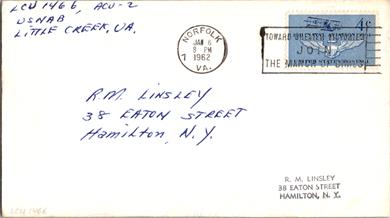 LCU 1466, ACU-2
USNAB
LITTLE CREEK, VA.
NORFOLK
JAN 6
8 PM
1962
VA.
4¢
JOIN
THE MARCH OF DIMES
R.M. LINSLEY
38 EATON STREET
Hamilton, N.Y.
R. M. LINSLEY
38 EATON STREET
HAMILTON, N. Y.
LCU 1466